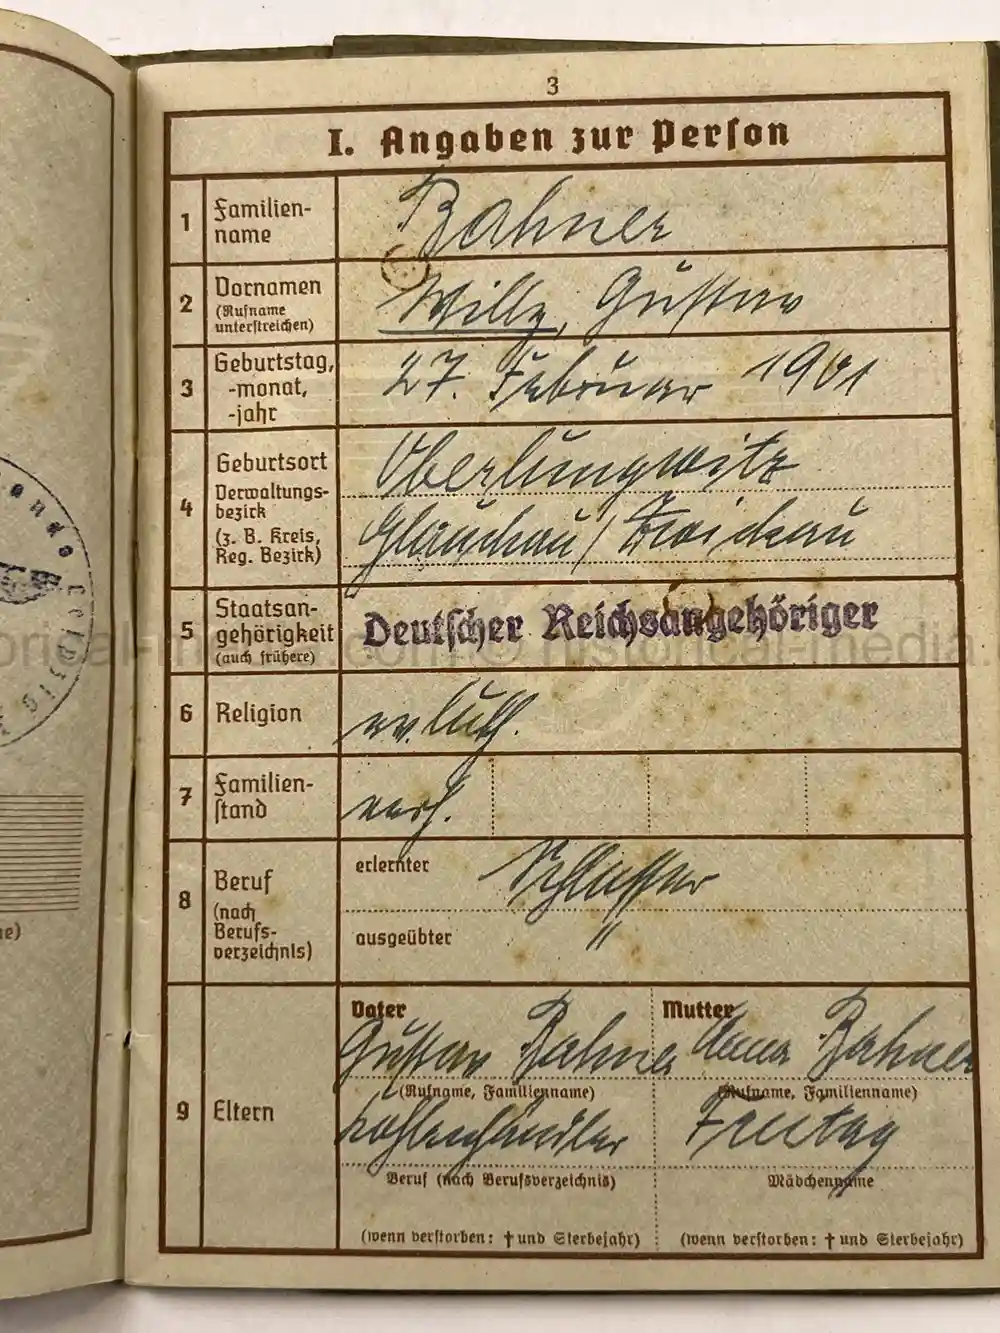 3
I. Angaben zur Person
1 Familien-
name
Bahner
2 Vornamen
(Rufname
unterstreichen)
Willy, Gustav
3 Geburtstag,
-monat,
-jahr
27. Februar 1901
4 Geburtsort
Verwaltungs-
bezirk
(z. B. Kreis,
Reg. Bezirk)
Oberlungwitz
Glauchau / Zwickau
5 Staatsan-
gehörigkeit
(auch frühere)
Deutscher Reichsangehöriger
historical-media.
6 Religion
ev. luth.
7 Familien-
stand
verh.
8 Beruf
(nach
Berufs-
verzeichnis)
erlernter Schlosser
ausgeübter "
9 Eltern
Vater
Gustav Bahner
(Rufname, Familienname)
Kohlenhändler
Beruf (nach Berufsverzeichnis)
(wenn verstorben: † und Sterbejahr)
Mutter
Anna Bahner
(Rufname, Familienname)
Freitag
Mädchenname
(wenn verstorben: † und Sterbejahr)